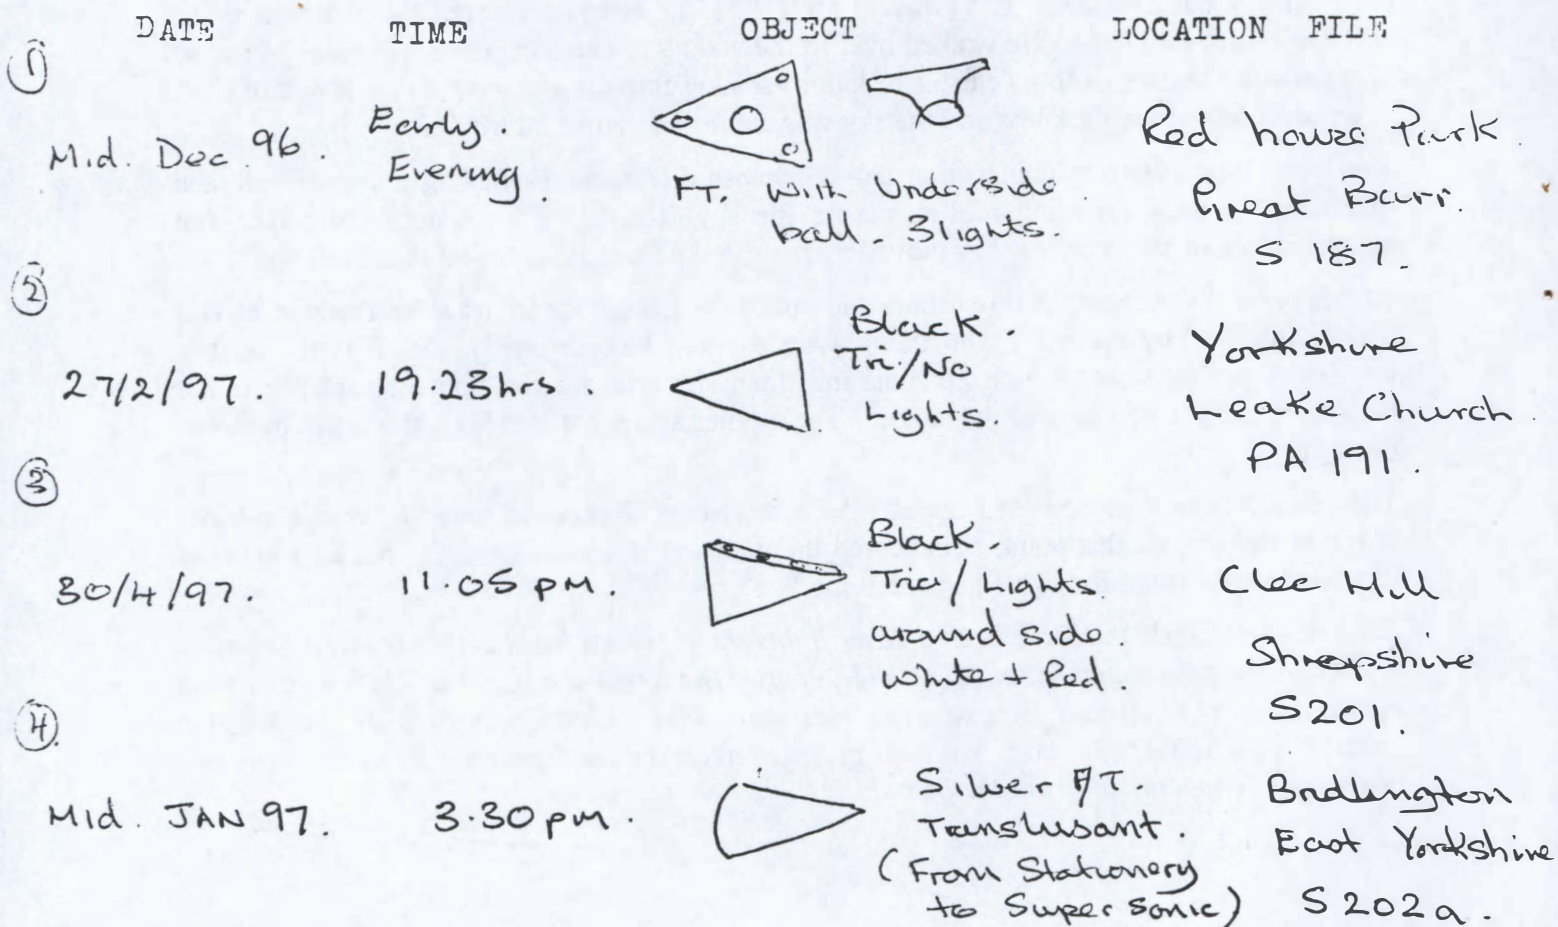 DATE TIME OBJECT LOCATION FILE
①
Mid. Dec. 96. Early. Evening.
FT. With Underside ball - 3 lights.
Red house Park.
Great Barr.
S 187.
②
27/2/97. 19.23hrs.
Black.
Tri/No
Lights.
Yorkshire
Leake Church.
PA 191.
③
30/4/97. 11.05 pm.
Black.
Tria/Lights.
around side.
white + Red.
Clee Hill
Shropshire
S201.
④
Mid. JAN 97. 3.30 pm.
Silver FT
Translusant.
(From Stationery
to Super Sonic)
Bridlington
East Yorkshire
S202a.